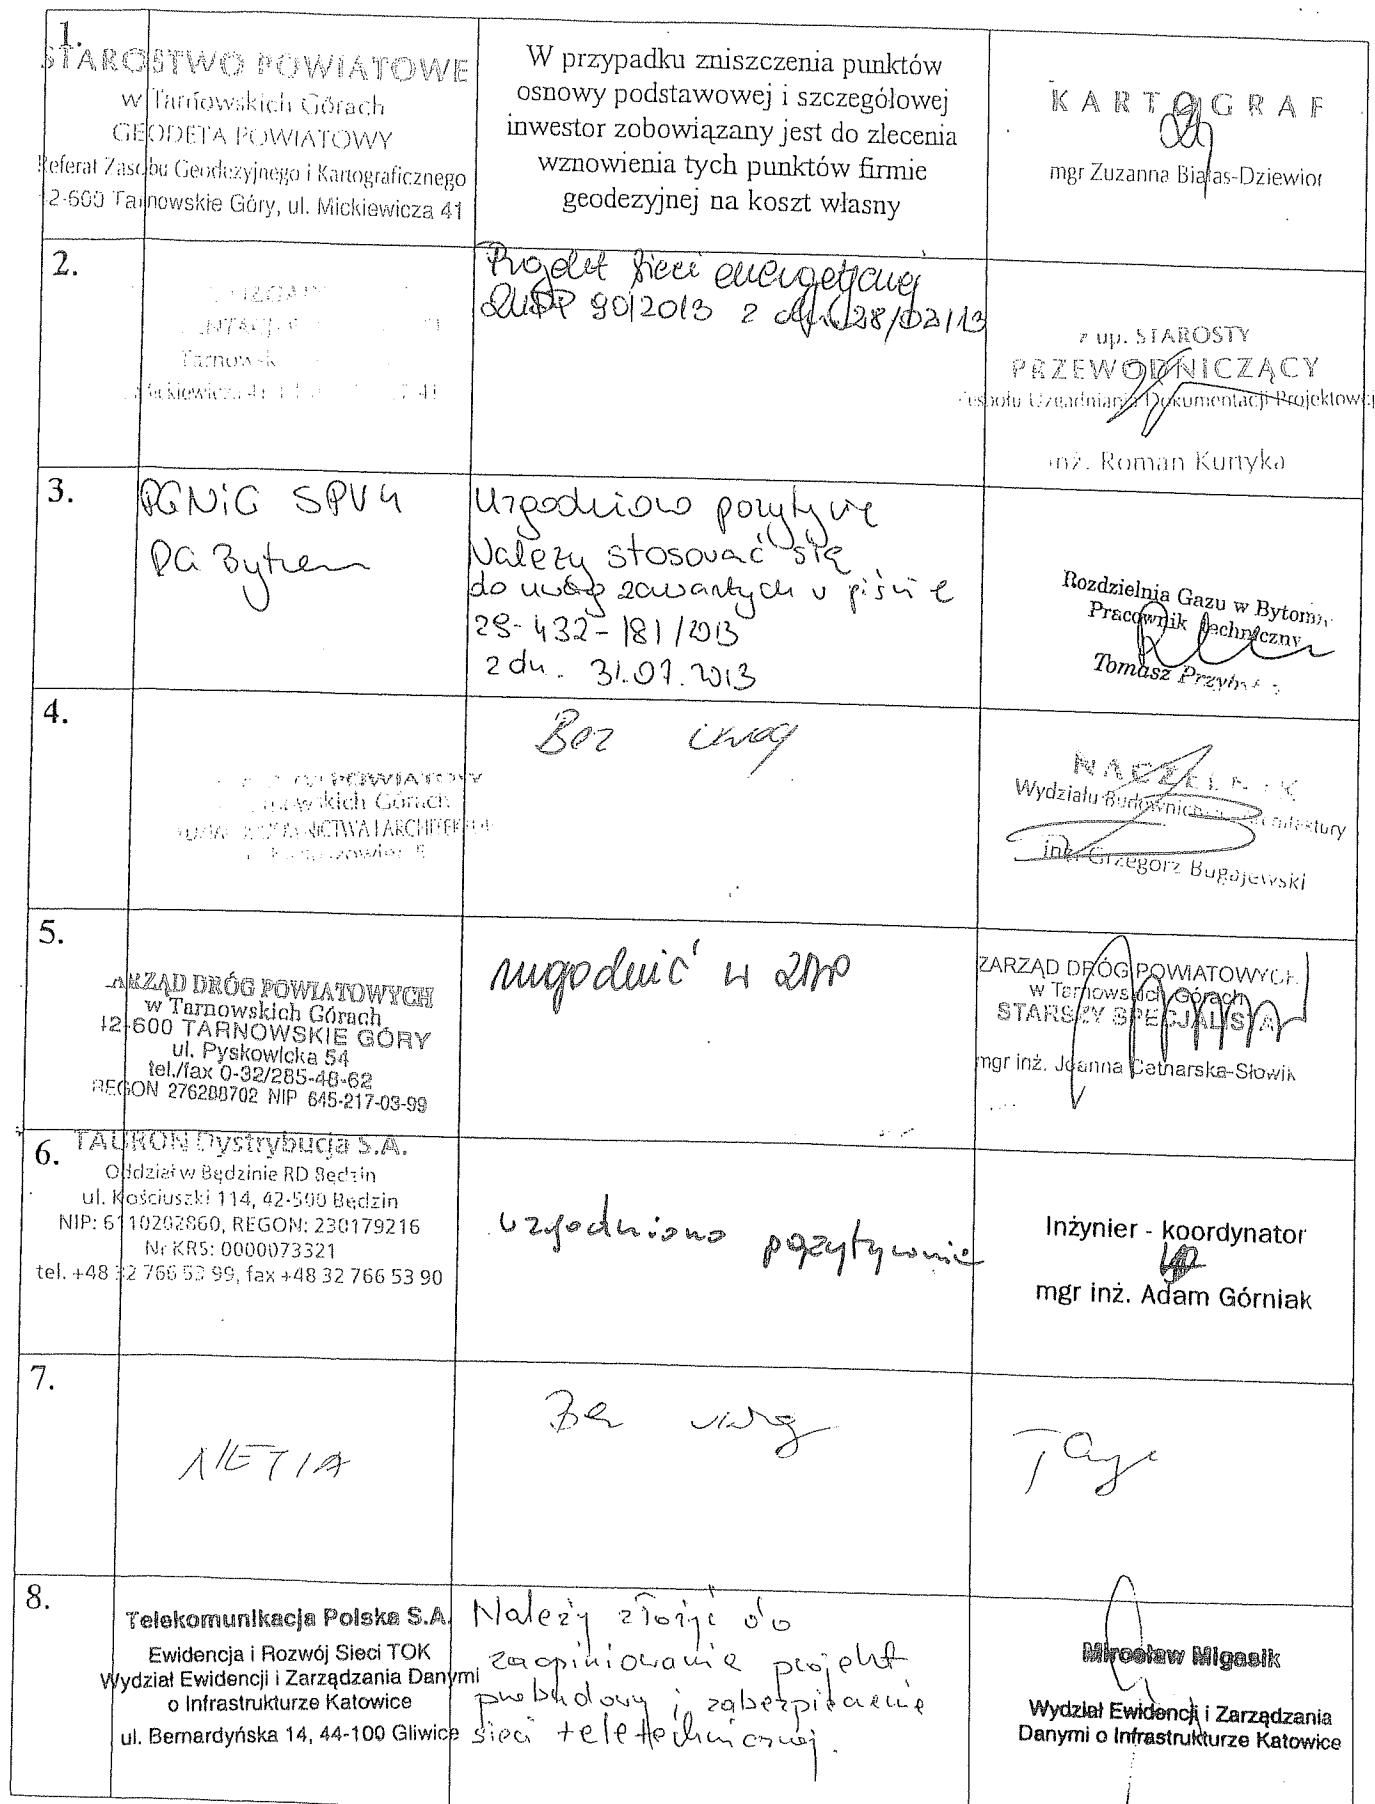 1.
STAROSTWO POWIATOWE
w Tarnowskich Górach
GEODETA POWIATOWY
Referat Zasobu Geodezyjnego i Kartograficznego
42-600 Tarnowskie Góry, ul. Mickiewicza 41
W przypadku zniszczenia punktów
osnowy podstawowej i szczegółowej
inwestor zobowiązany jest do zlecenia
wznowienia tych punktów firmie
geodezyjnej na koszt własny
KARTOGRAF
mgr Zuzanna Białas-Dziewior
2.
Tarnowsk
Mickiewicza 41
Projekt sieci energetycznej
90/2013 z dn. 28/02/13
z up. STAROSTY
PRZEWODNICZĄCY
Zespołu Uzgadniania Dokumentacji Projektowej
inż. Roman Kurtyka
3.
PGNiG SPV4
RG Bytom
Uzgodniono pozytywnie
Należy stosować się
do uwag zawartych w piśmie
432-181/2013
z dn. 31.01.2013
Rozdzielnia Gazu w Bytomiu
Pracownik techniczny
Tomasz
4.
POWIATOWE
Górach
BUDOWNICTWA I ARCHITEKTURY
Bez uwag
NACZELNIK
Wydziału Budownictwa i Architektury
inż. Grzegorz Bugajewski
5.
ZARZĄD DRÓG POWIATOWYCH
w Tarnowskich Górach
42-600 TARNOWSKIE GÓRY
ul. Pyskowicka 54
tel./fax 0-32/285-48-62
REGON 276288702 NIP 645-217-03-99
uzgodnić w ZDP
ZARZĄD DRÓG POWIATOWYCH
w Tarnowskich Górach
STARSZY SPECJALISTA
mgr inż. Joanna Catharska-Słowik
6.
TAURON Dystrybucja S.A.
Oddział w Będzinie RD Będzin
ul. Kościuszki 114, 42-500 Będzin
NIP: 6110202860, REGON: 230179216
Nr KRS: 0000073321
tel. +48 32 766 53 99, fax +48 32 766 53 90
uzgodniono pozytywnie
Inżynier - koordynator
mgr inż. Adam Górniak
7.
NETIA
Bez uwag
8.
Telekomunikacja Polska S.A.
Ewidencja i Rozwój Sieci TOK
Wydział Ewidencji i Zarządzania Danymi
o Infrastrukturze Katowice
ul. Bernardyńska 14, 44-100 Gliwice
Należy złożyć do
zaopiniowania projekt
przebudowy i zabezpieczenie
sieci teletechnicznej.
Mirosław Migasik
Wydział Ewidencji i Zarządzania
Danymi o Infrastrukturze Katowice